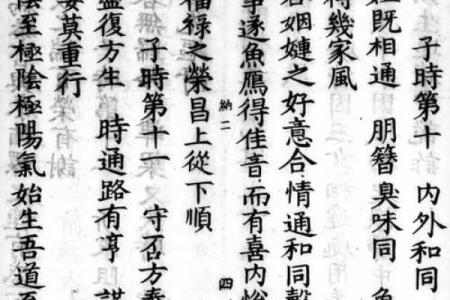 子時第十 內外和同
姓既相通 朋簪臭味同
幾家風
姻之好意合情通和同
納二 四
事遂魚鴈得佳音而有喜內
福祿之榮昌上從下順
子時第十一 守否方泰
復方生 時通路有亨 謀
妄莫重行
至極陰極陽氣始生吾道至